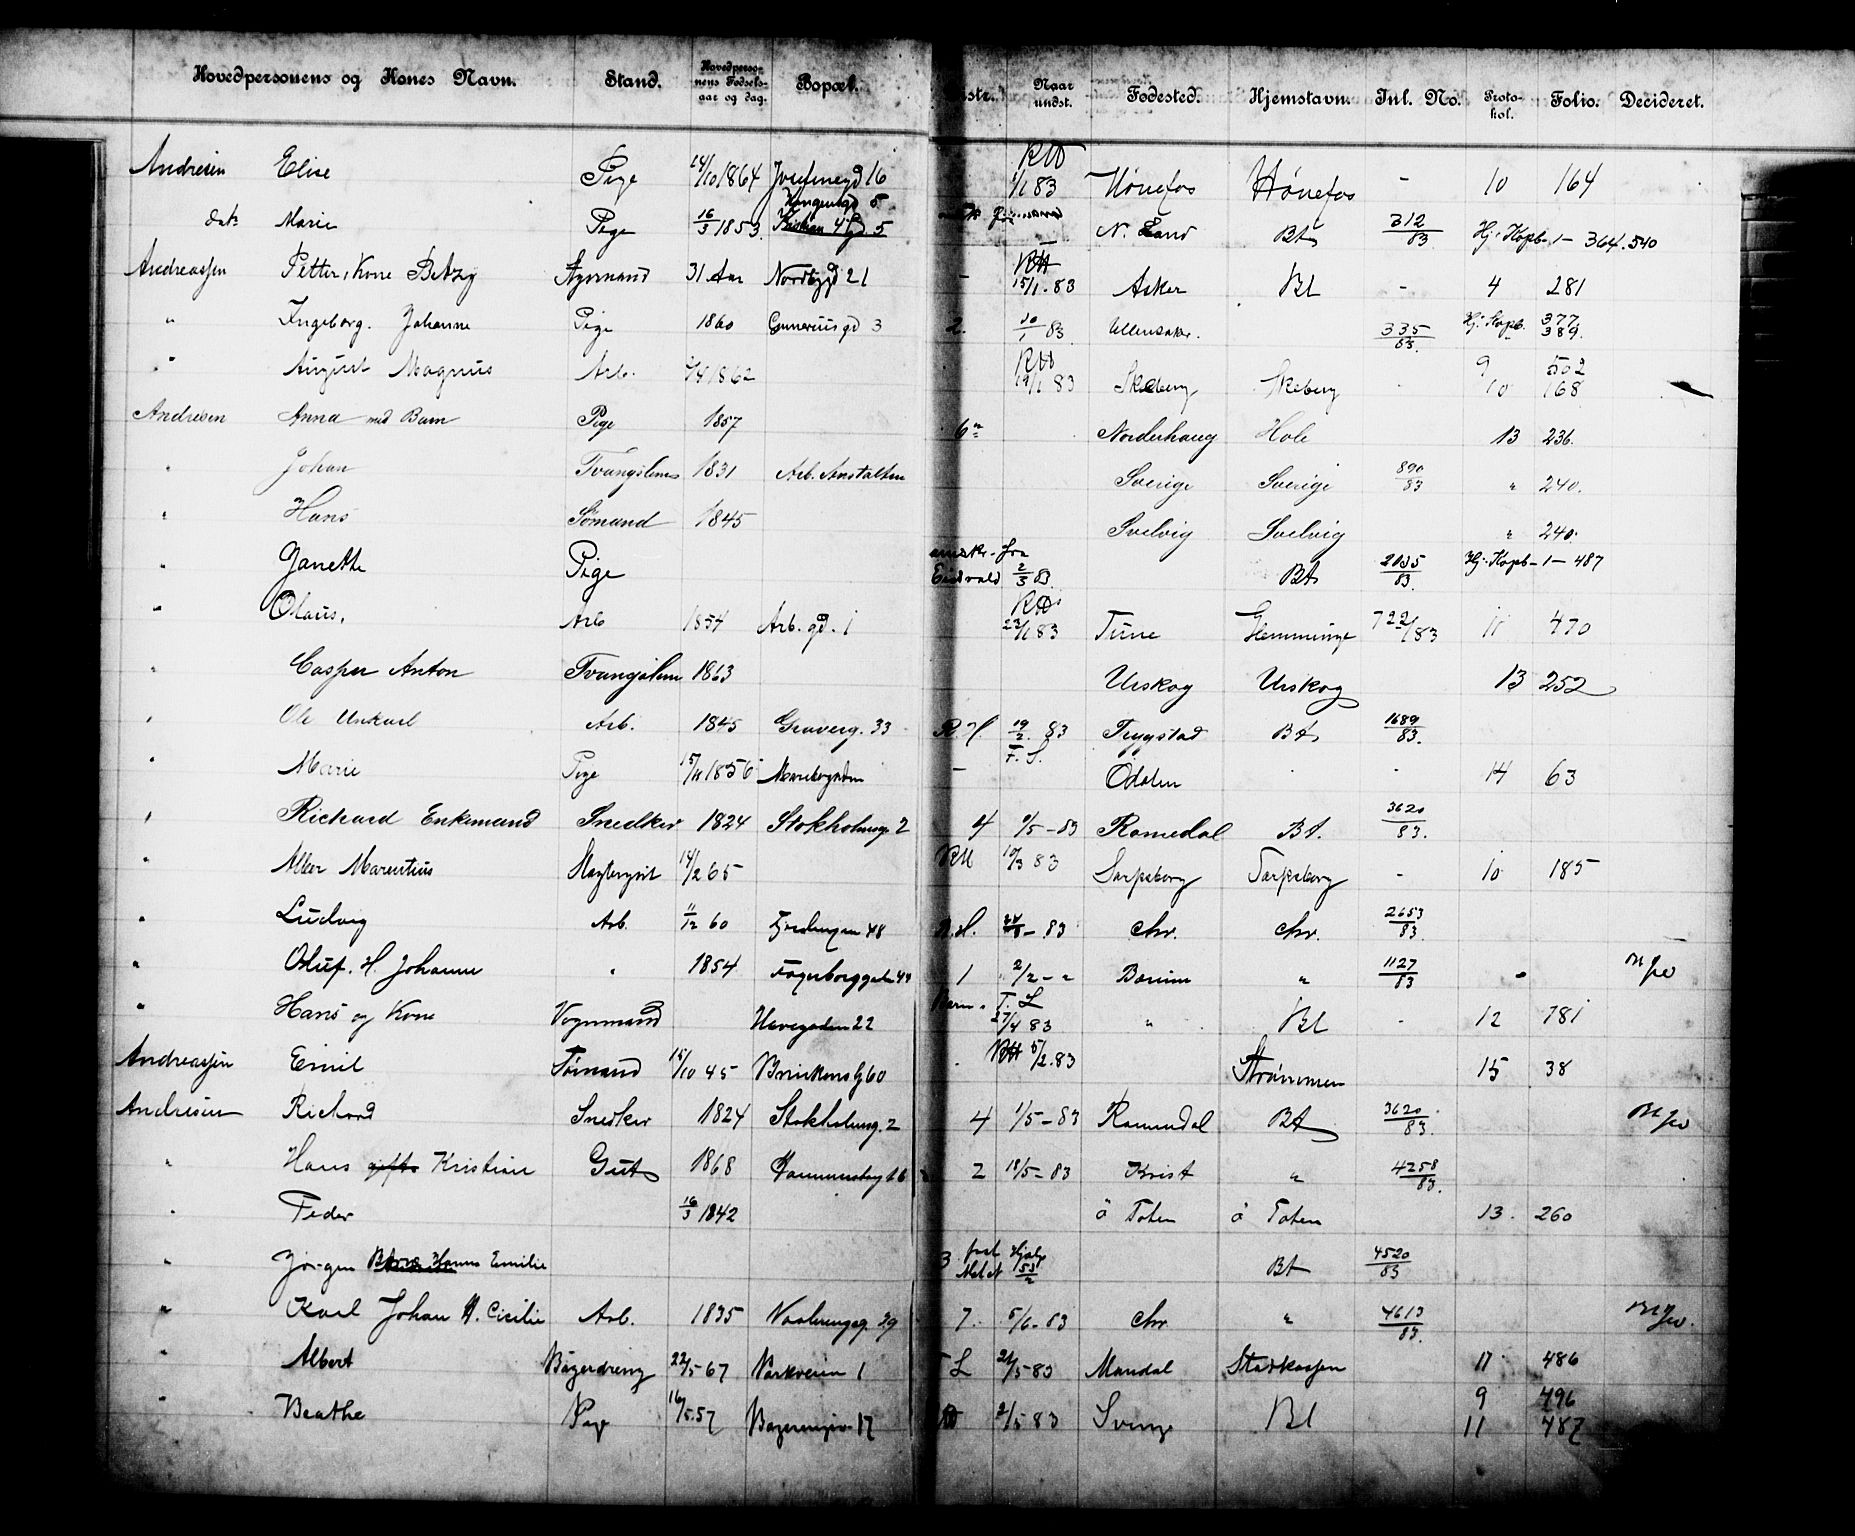 Hovedpersonens og Kones Navn. Stand. Hovedperso-nens Fødsels-aar og dag. Bopæl. Distr. Naar undst. Fødested. Hjemstavn. Inl. No. Proto-kol. Folio. Decideret.
Andresen Elise Pige 14/10 1864 16 RH 1/1 83 Hønefos Hønefos - 10 164
dato Marie Pige 16/3 1853 Kongensgd 5 Kristian 4 Gd 5 N. Land Bt 312/83 Hj. Kopb. 1 - 364.540
Andreassen Petter, Kone Betzy Styrmand 31 Aar Nordbygd 21 - RH 15/1 - 83 Asker Bt - 4 281
" Ingeborg. Johanne Pige 1860 Gunerius gd 3 2. 20/1 83 Ullensaker. 335/83. Hj. Kopb. 377 389.
" August Magnus Arb. 1862 RH 19/1 83 Skeberg Skeberg - 9 502 10 168
Andresen Anna med Barn Pige 1857 6 Norderhaug Hole 13 236.
" Johan Tvangslem 1831 Arb. Anstalten Sverige Sverige 890/83 " 240.
" Hans Sømand 1845 Svelvig Svelvig " 240.
" Janette Pige omskr. fra Eidsvold 2/3 83. Bt 2035/83 Hj. Kopb - 1 - 487
" Olaus. Arb 1854 Arb. gd. 1 RH 23/1 83 Tune Glemminge 722/83 11 470
" Casper Anton Tvangslem 1863 Urskog Urskog 13 252
" Ole Arb. 1845 Graverg. 33 R. H. 19/2 83 Trygstad Bt 1689/83.
" Marie Pige 15/11 1856 - F. S. Odalen - - 14 63
" Richard Enkemand Snedker 1824 Stokholmsg 2 4 1/5 - 83 Romedal Bt. 3620/83.
" Marentius 14/2 65 RH 10/3 83 Sarpsborg Sarpsborg - 10 185
" Ludvig Arb. 11/12 60 48 83 Chr. Chr. 2653/83
" Oluf. H. Johanne " 1854 Fagerborggaden 44 1 2/2 - " Bærum " 1127/83
" Hans og Kone Vognmand Havegaden 22 27/4 83 " Bt - 12 781
Andreassen Emil Sømand 15/10 45 60 RH 5/2. 83 Strømmen 15 38
Andresen Richard Snedker 1824 Stokholmsg. 2 4 1/5 - 83 Romedal Bt 3620/83.
" Hans gift Kristian Gut 1868 2 18/5 - 83 Krist " 4258/83.
" Peder 16/3 1842 ö Toten ö Toten 13. 260
" Jørgen Hanna Emilie 3 fast Hjælp Bt 4520/83
" Karl Johan H. Cicilie Arb. 1835 Vaalerengsg. 29 7. 5/6 - 83 Chr. " 4613/83.
" Albert Bagerdreng 22/5 67 Parkveien 1 21/5 - 83 Mandal Stadkassen 11 486
" Beathe Pige 16/5. 57 17 2/5 83 Sverige Bt 9 496 11 487